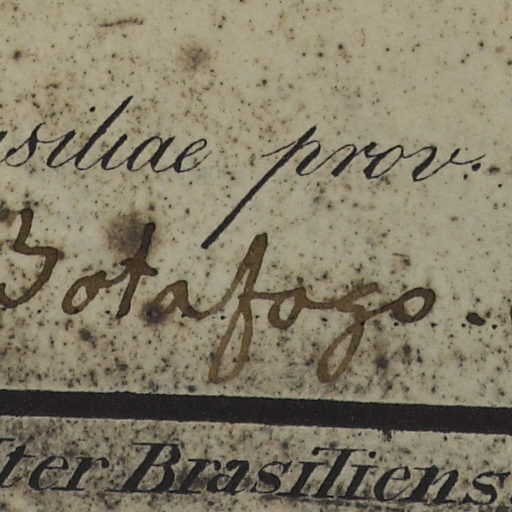 asiliae prov.
Botafogo.
Iter Brasiliens.